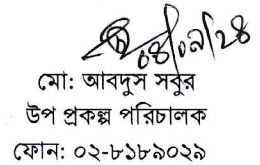 ০৪/০৭/২৪
মো: আবদুস সবুর
উপ প্রকল্প পরিচালক
ফোন: ০২-৮১৮৯০২৯